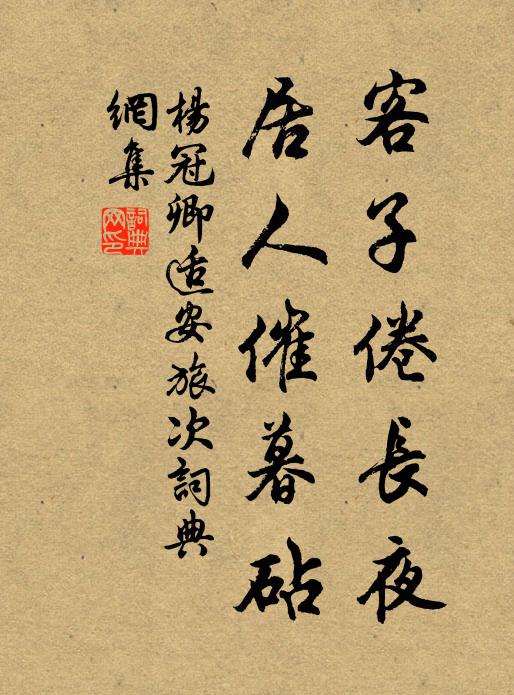 客子倦長夜
居人催暮砧
楊冠卿适安旅次詞典
網集
詞典
网印